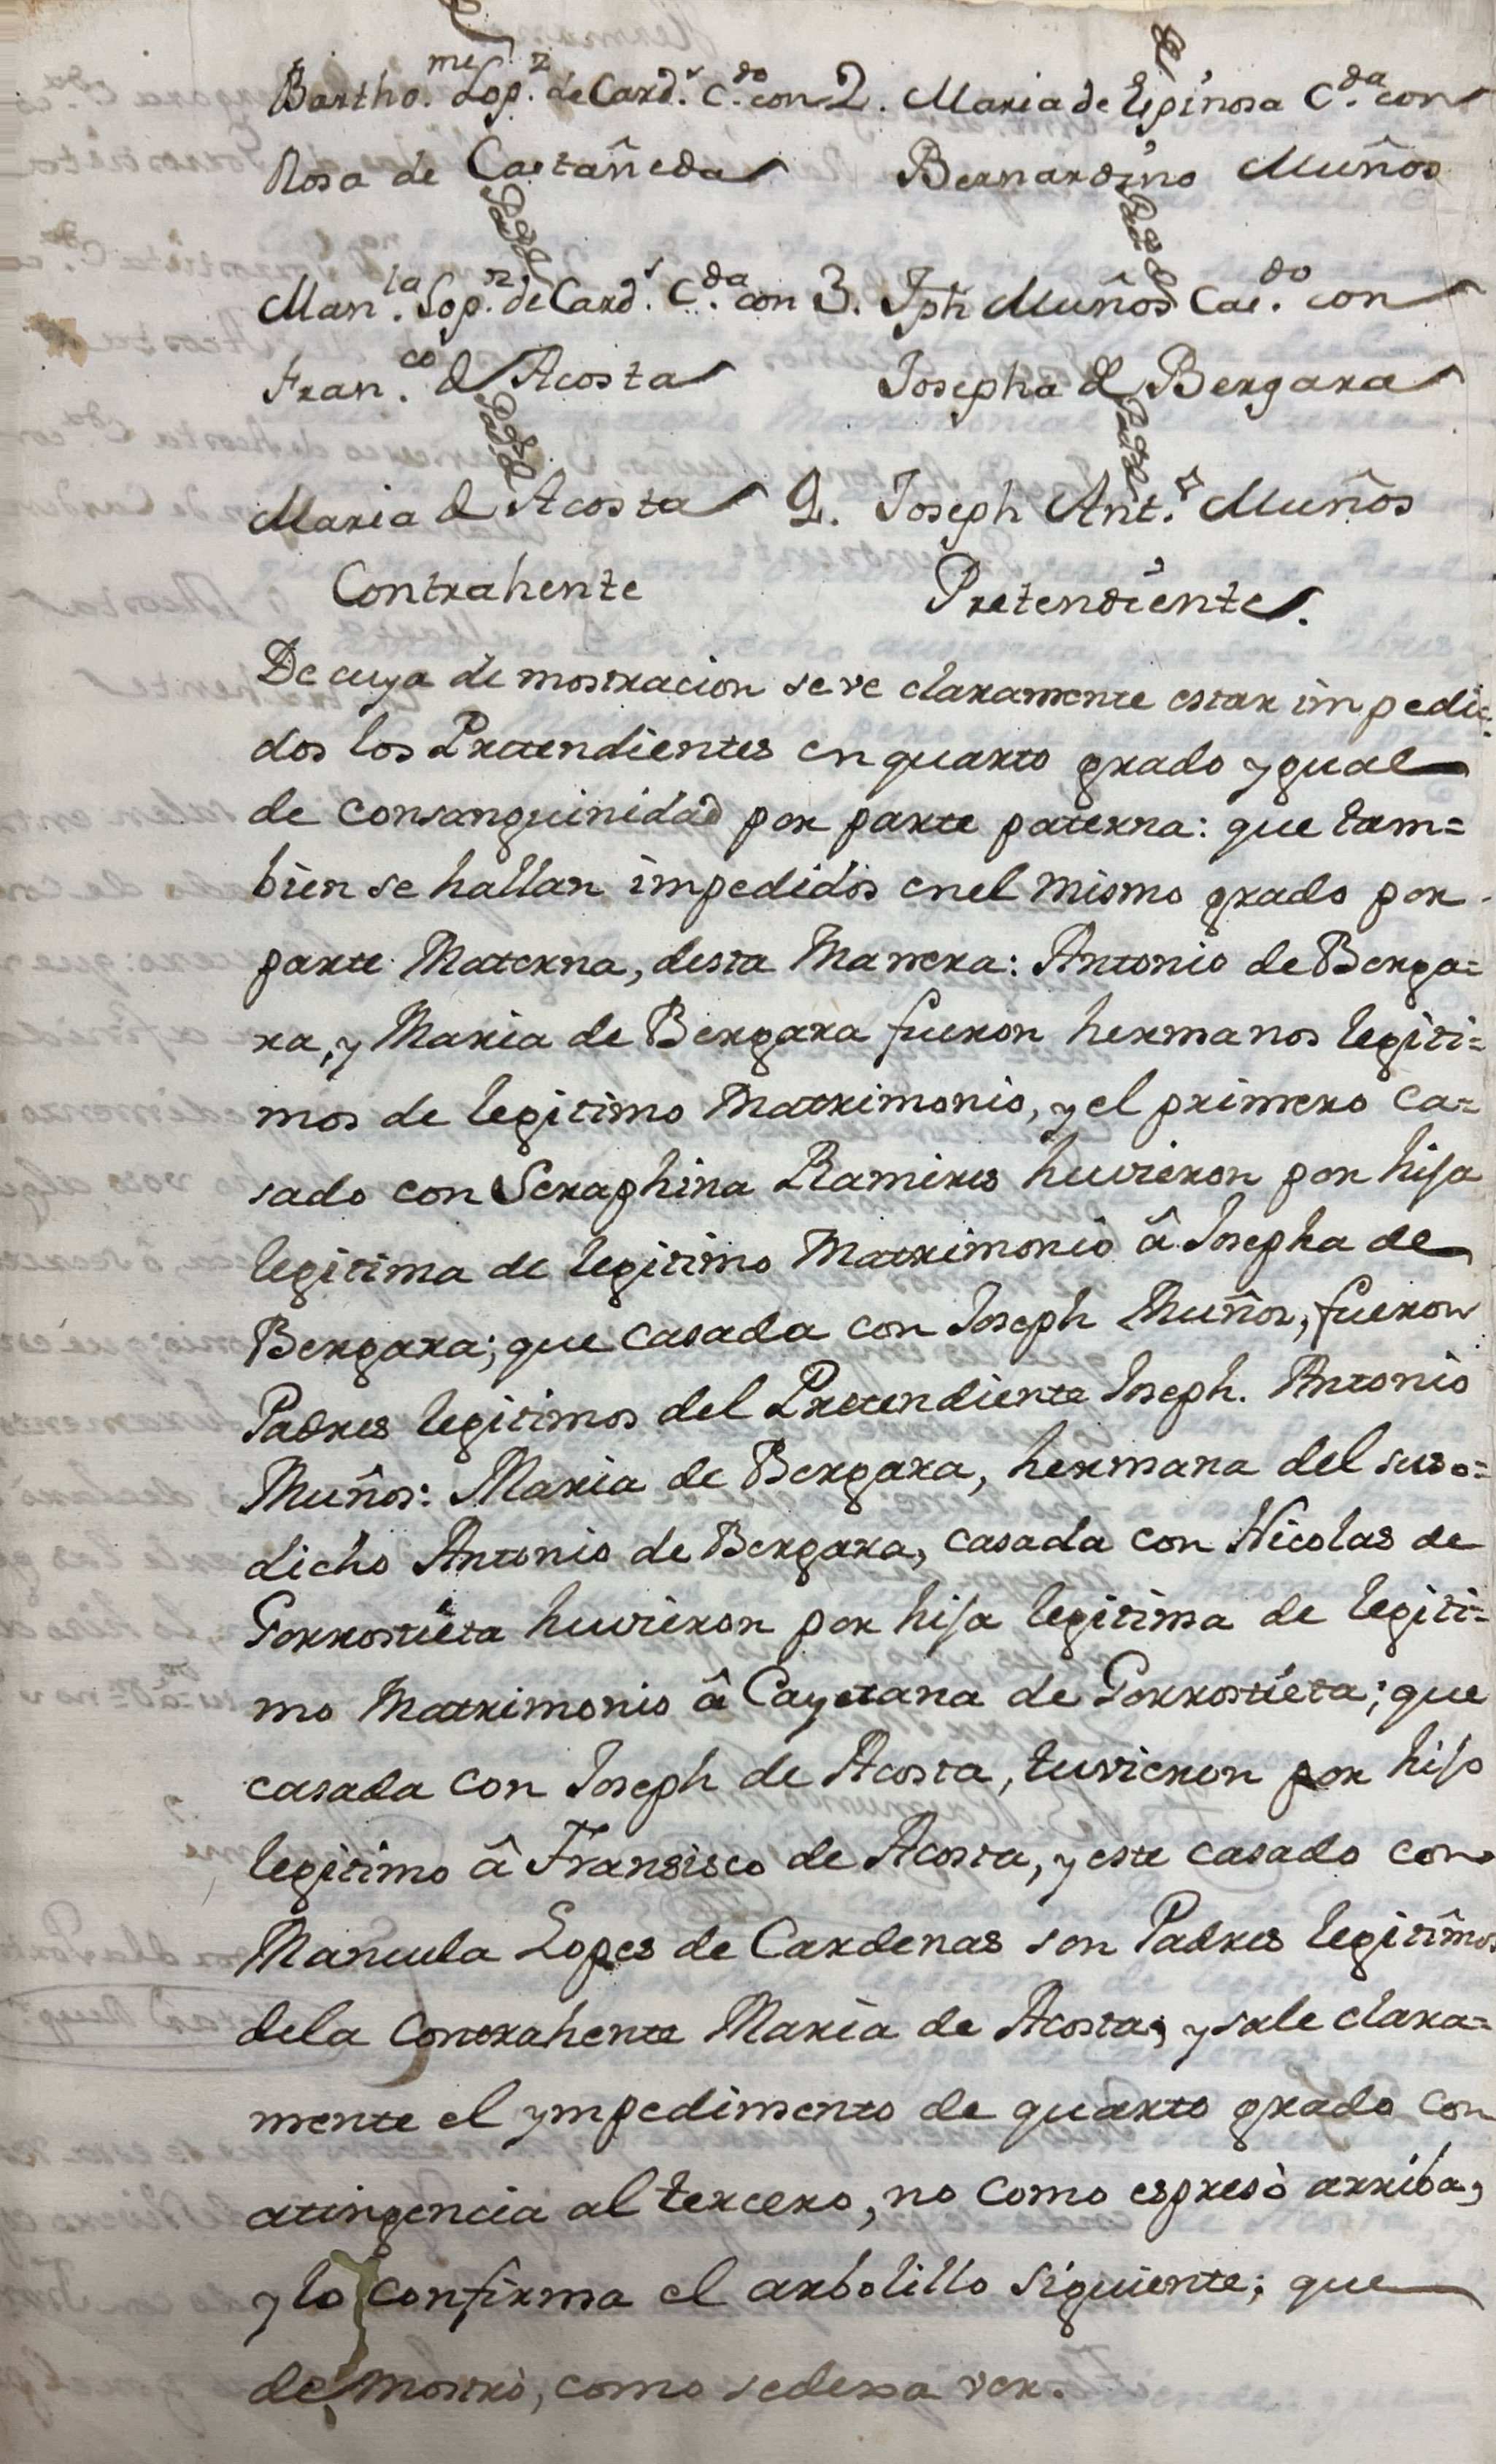 Bartho.me Lop.z de Card.s C.do con 2. Maria de Espinosa C.da con
Rosa de Castañeda Bernardino Muños
Man.la Lop.z de Card.s C.da con 3. Jph Muños Cas.do con
Fran.co d Acosta Josepha d Bergara
Maria d Acosta 4. Joseph Ant.o Muños
Contrahente Pretendiente.
De cuya demostracion se ve claramente estar impedi=
dos los Pretendientes en quarto grado ygual
de consanguinidad por parte paterna: que tam=
bien se hallan impedidos en el mismo grado por
parte Materna, desta Manera: Antonio de Berga=
ra, y Maria de Bergara fueron hermanos legiti=
mos de legitimo Matrimonio, y el primero ca=
sado con Seraphina Ramires huvieron por hija
legitima de legitimo Matrimonio â Josepha de
Bergara; que casada con Joseph Muños, fueron
Padres legitimos del Pretendiente Joseph. Antonio
Muños: Maria de Bergara, hermana del suso=
dicho Antonio de Bergara, casada con Nicolas de
Gorrostieta huvieron por hija legitima de legiti=
mo Matrimonio â Cayetana de Gorrostieta; que
casada con Joseph de Acosta, tuvieron por hijo
legitimo â Fransisco de Acosta, y este casado con
Manuela Lopes de Cardenas son Padres legitimos
dela Contrahente Maria de Acosta, y sale clara=
mente el ympedimento de quarto grado con
atingencia al tercero, no como espresò arriba,
y lo confirma el arbolillo siguiente; que
demostrò, como se dexa ver.